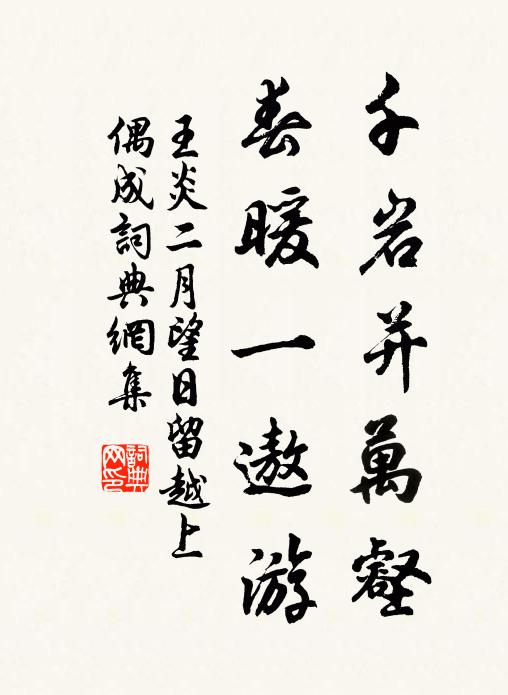 千岩并萬壑
春暖一遨游
王炎二月望日留越上
偶成詞典網集
詞典网印